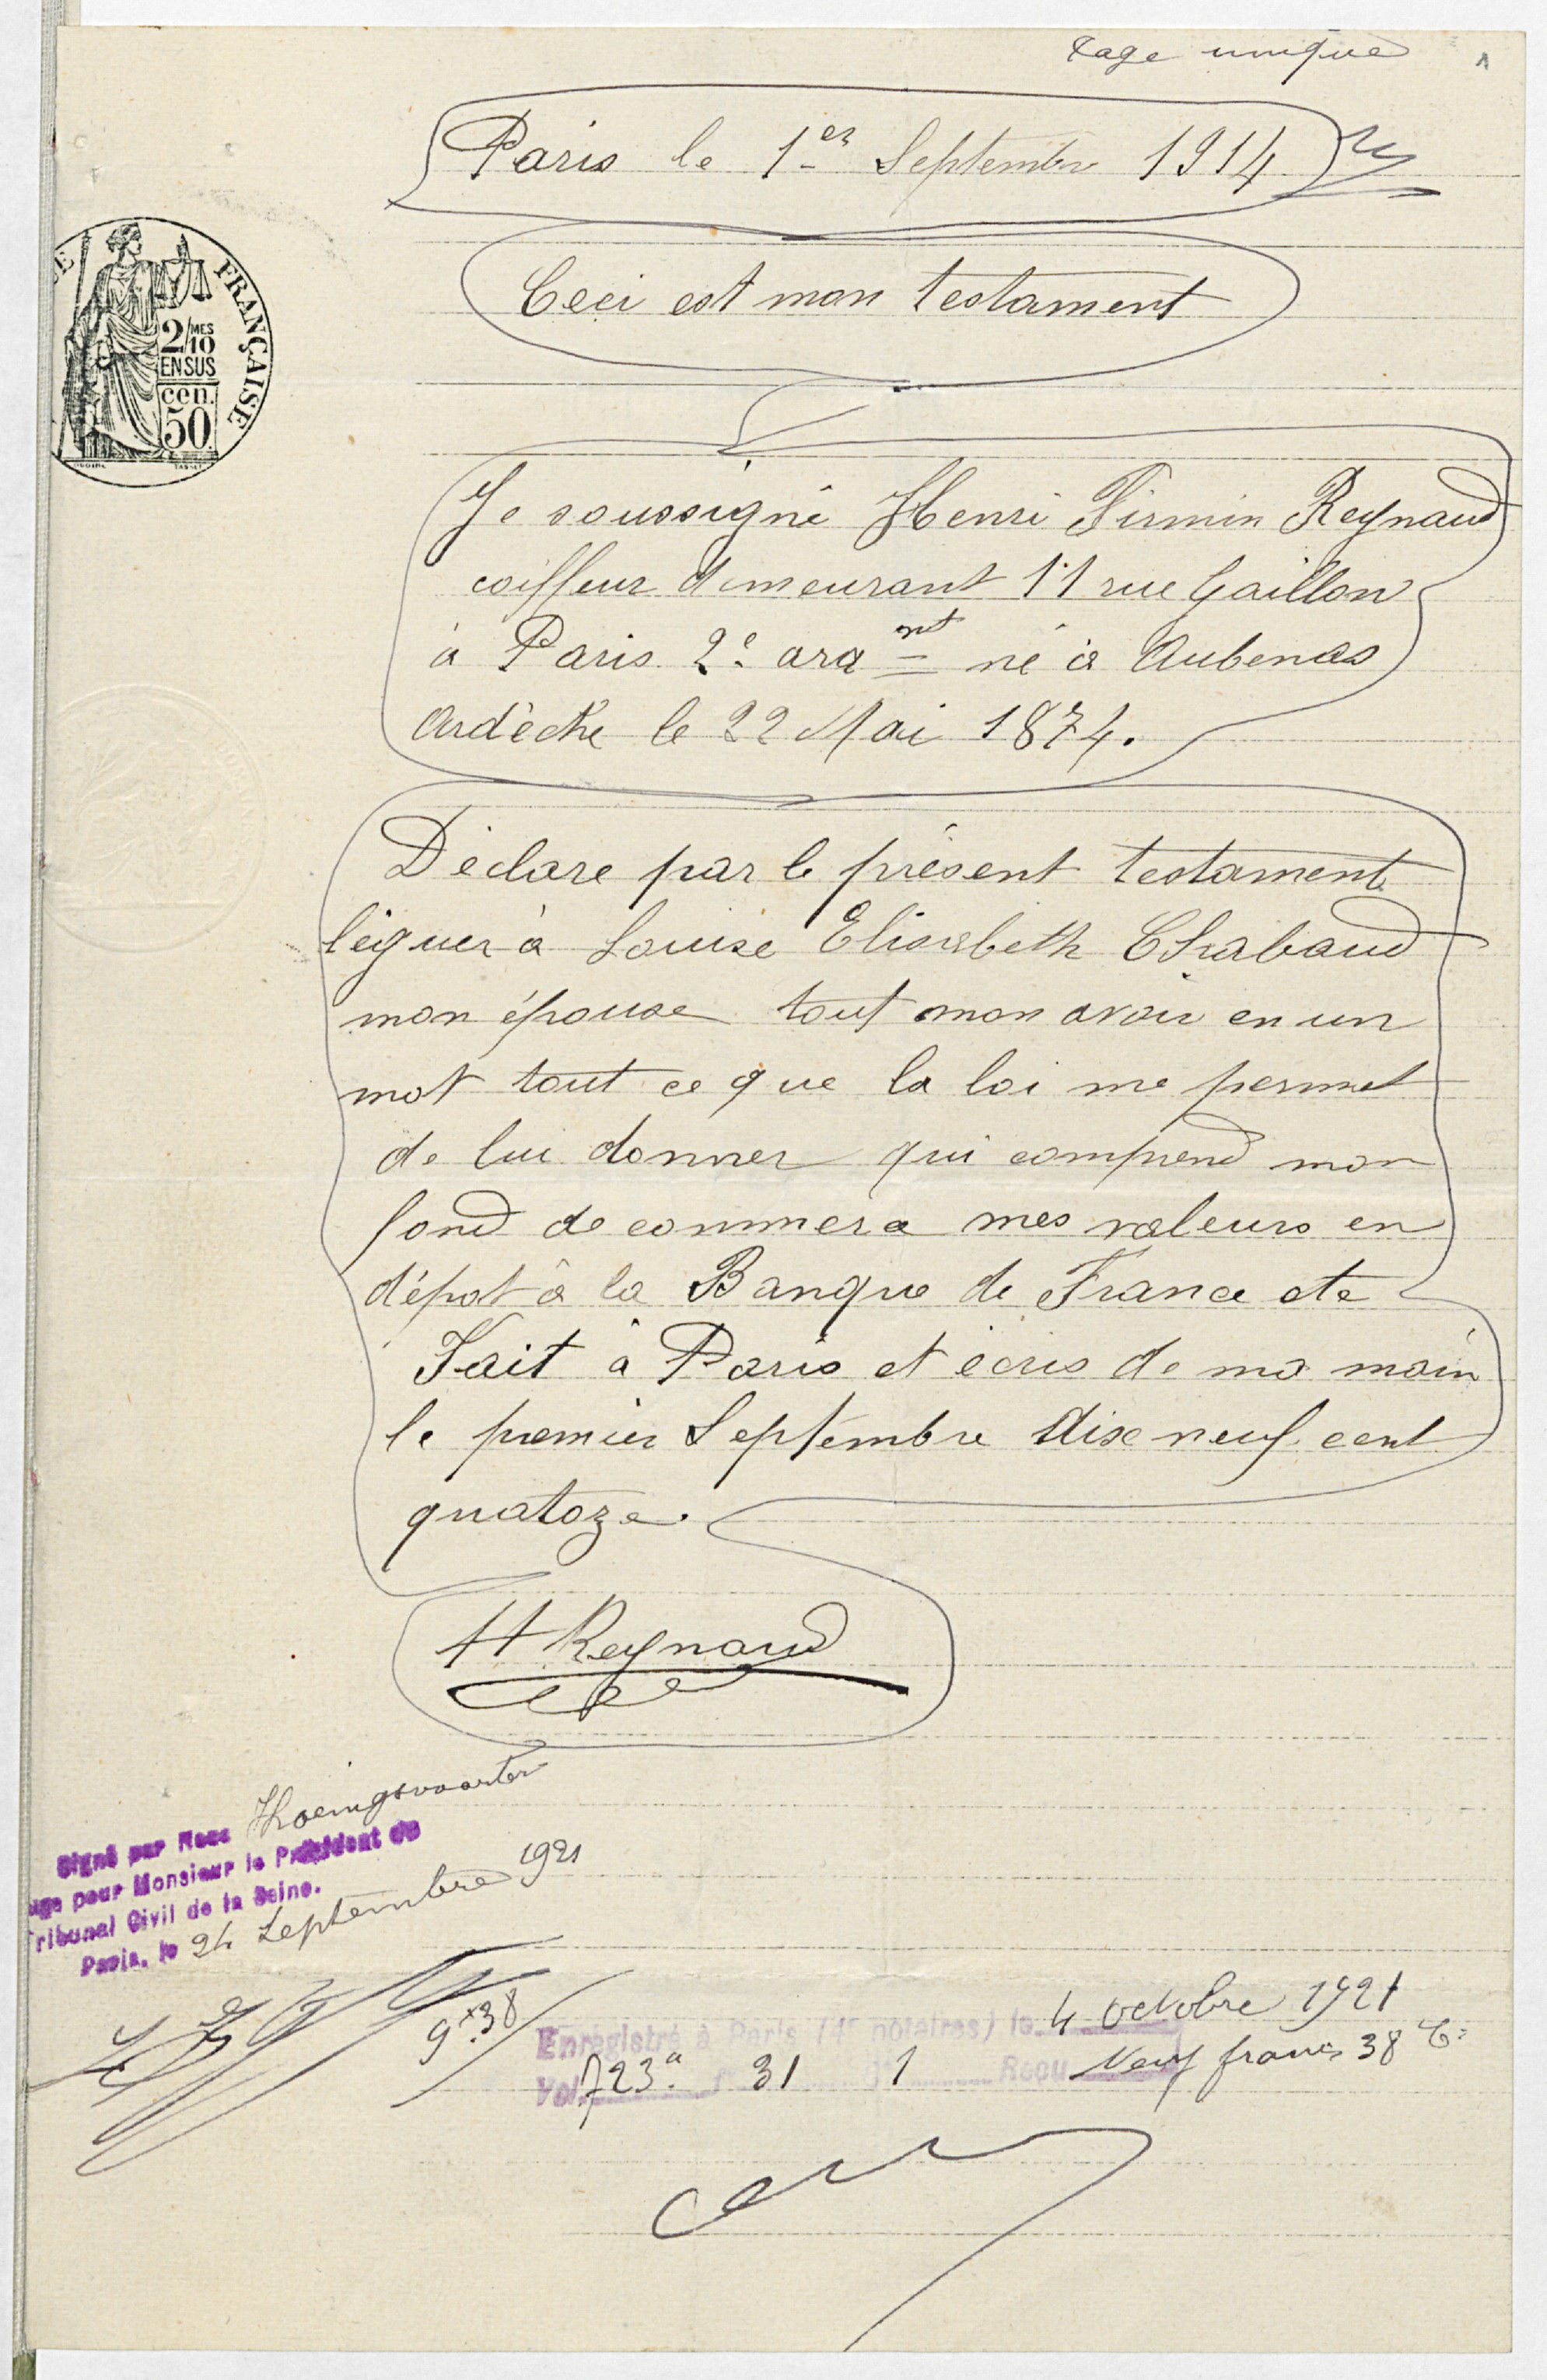 Page unique
1
Paris le 1er Septembre 1914
Ceci est mon testament
FRANÇAISE
2/10 MES
EN SUS
cen.
50
Je soussigné Henri Firmin Reynaud
coiffeur demeurant 11 rue Gaillon
à Paris 2e arrt né à Aubenas
Ardèche le 22 Mai 1874.
Déclare par le présent testament
léguer à Louise Elisabeth Chabaud
mon épouse tout mon avoir en un
mot tout ce que la loi me permet
de lui donner qui comprend mon
fond de commerce mes valeurs en
dépot à la Banque de France etc
Fait à Paris et écris de ma main
le premier Septembre dix neuf cent
quatoze.
H Reynaud
Signé par Nous
uge pour Monsieur le Président du
Tribunal Civil de la Seine.
Paris, le 24 Septembre 1921
9f.38
Enregistré à Paris (1er notaires) le 4 octobre 1921
Vol 723a 31 1 Reçu Neuf francs 38 c